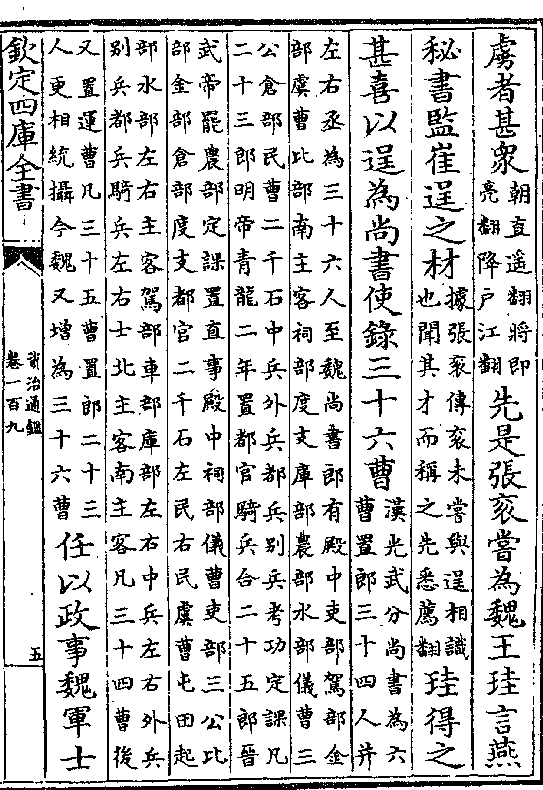 虜者甚衆朝直遥翻將即
亮翻降戶江翻先是張袞嘗為魏王珪言燕
秘書監崔逞之材據張袞傳袞未嘗與逞相識
也聞其才而稱之先悉薦翻珪得之
甚喜以逞為尚書使錄三十六曹漢光武分尚書為六
曹置郎三十四人并
左右丞為三十六人至魏尚書郎有殿中吏部駕部金
部虞曹比部南主客祠部度支庫部農部水部儀曹三
公倉部民曹二千石中兵外兵都兵別兵考功定課凡
二十三郎明帝青龍二年置都官騎兵合二十五郎晉
武帝罷農部定課置直事殿中祠部儀曹吏部三公比
部金部倉部度支都官二千石左民右民虞曹屯田起
部水部左右主客駕部車部庫部左右中兵左右外兵
別兵都兵騎兵左右士北主客南主客凡三十四曹後
又置運曹凡三十五曹置郎二十三
人更相統攝今魏又增為三十六曹任以政事魏軍士
欽定四庫全書
資治通鑑
卷一百九
五